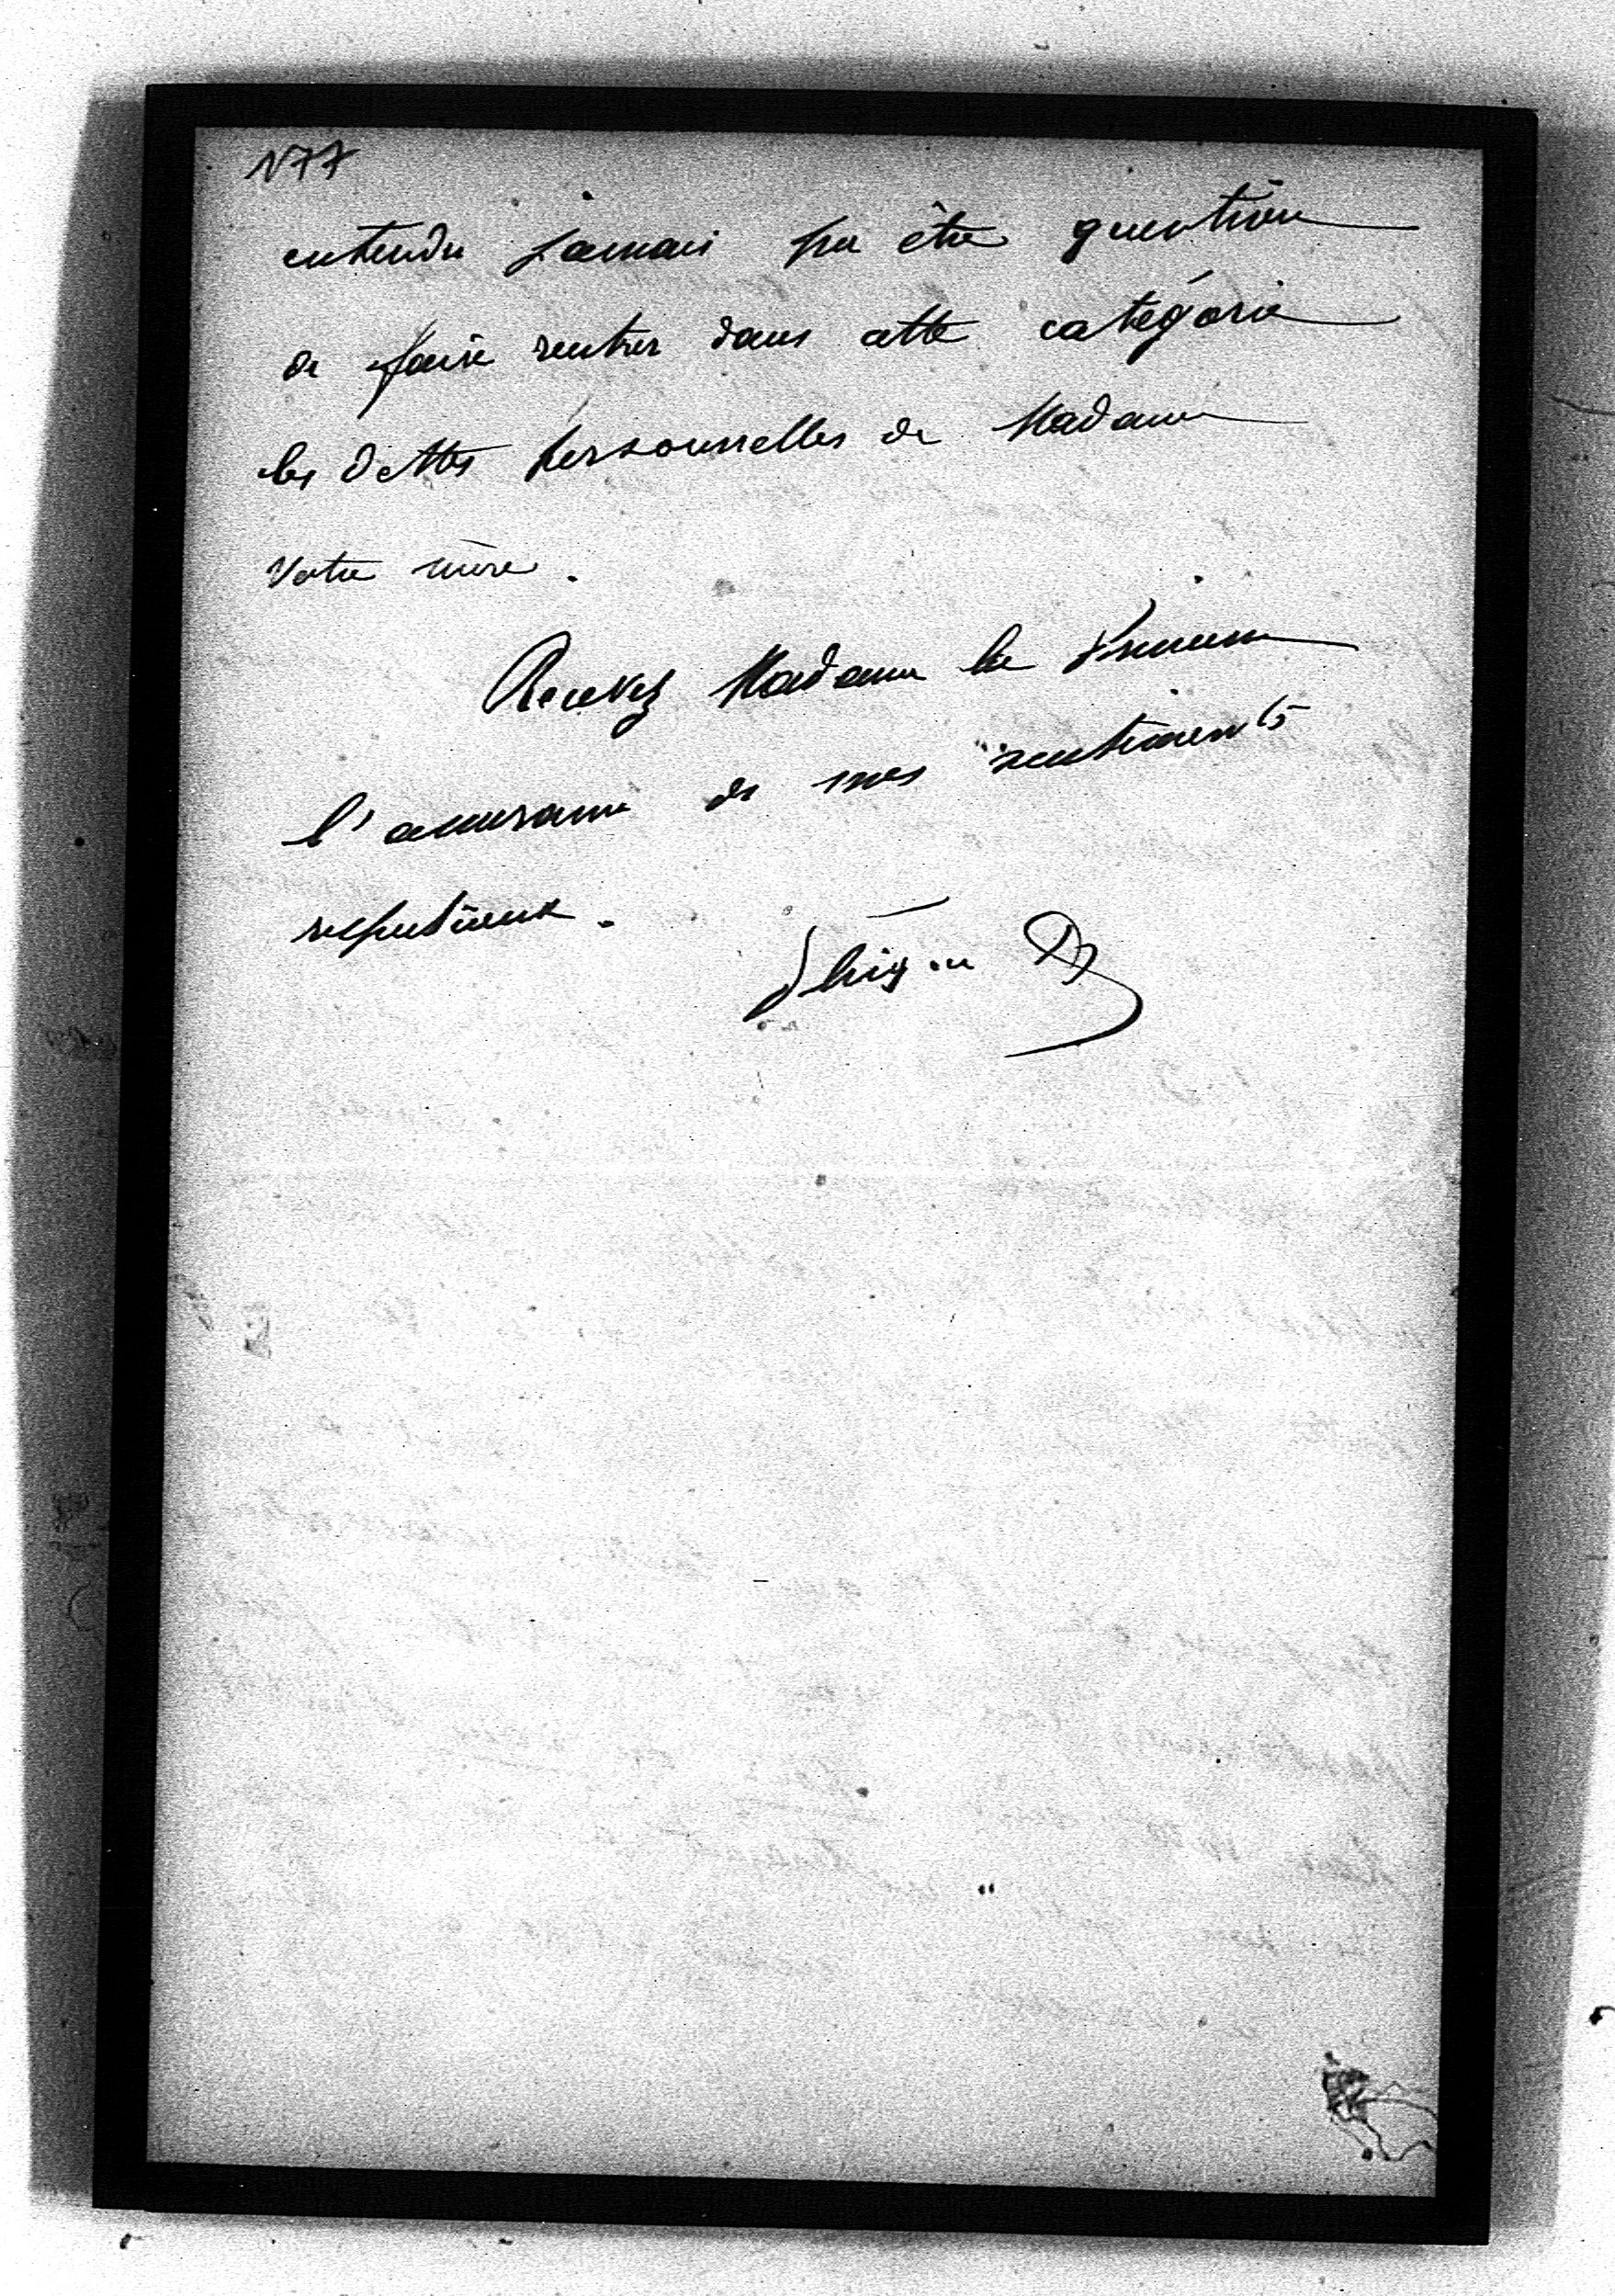 177
entendu jamais pu être question
de faire rentrer dans cette catégorie
les dettes personnelles de Madame
Votre mère.
Recevez Madame la Princesse
l'assurance de mes sentiments
respectueux.